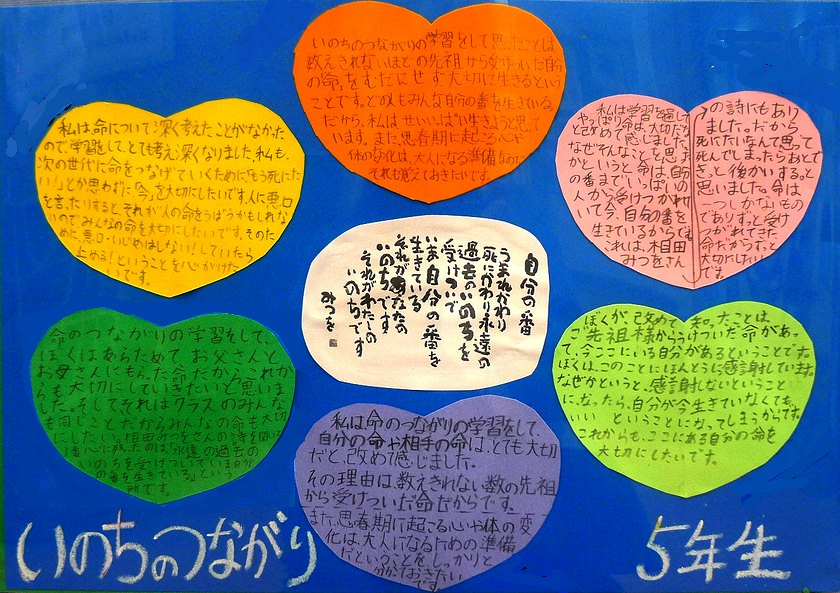 いのちのつながりの学習をして思ったことは
数えきれないほどの先祖から受けついだ自分
の命をむだにせず大切に生きるという
ことです。どの人もみんな自分の番を生きている
だから、私はせいいっぱい生きようと思って
います。また、思春期に起こる心や
体の変化は、大人になる準備なので
それも覚えておきたいです。
私は命について深く考えたことがなかった
ので、学習をしてとても考え深くなりました。私も、
次の世代に命をつなげていくために「もう死にた
い!」とか思わずに「今」を大切にしたいです。人に悪口
を言ったりすると、それが人の命をうばうかもしれな
いのでみんなの命を大切にしたいです。そのた
めに、悪口・いじめはしない!していたら
止める!ということを心がけた
いです。
私は学習を通して
やっぱり命は大切だな
と改めて感じました。
なぜそんなことを思った
かというと命は自分
の番まで、いっぱいの
人から受けつがれて
いて今、自分の番を
生きているからです
これは、相田
みつをさん
の詩にもあり
ました。だから
死にたいなんて思って
死んでしまったらあとで
きっと後かいすると
思いました。命は
一つしかないもの
でありずっと受け
つがれてきた
命だからずっと
大切にしたい
です。
自分の番
うまれかわり
死にかわり永遠の
過去のいのちを
受けついで
いま自分の番を
生きている
それがあなたの
いのちです
それがわたしの
いのちです
みつを
命のつながりの学習をして、
ぼくはあらためてお父さんと
お母さんにもらった命だからこれか
らも大切にしていきたいと思いま
した。そしてそれはクラスのみんな
も同じことだからみんなの命も大切
にしたい。相田みつをさんの詩を聞いて
一番心に残ったのは永遠の過去の
いのちを受けついでいま自分
の番を生きている。という
詩です。
ぼくが改めて知ったことは、
ご先祖様からうけついだ命があっ
て、今ここにいる自分があるということでした。
ぼくは、このことにほんとうに感謝しています。
なぜかというと、感謝しないということ
になったら、自分が今生きていなくても、
いいということになってしまうからです。
これからも、ここにある自分の命を
大切にしたいです。
私は命のつながりの学習をして、
自分の命や相手の命は、とても大切
だと改めて感じました。
その理由は数えきれない数の先祖
から受けついだ命だからです。
また、思春期に起こる心や体の変
化は、大人になるための準備
だということをしっかりと
分かっておきたい
です。
いのちのつながり
5年生